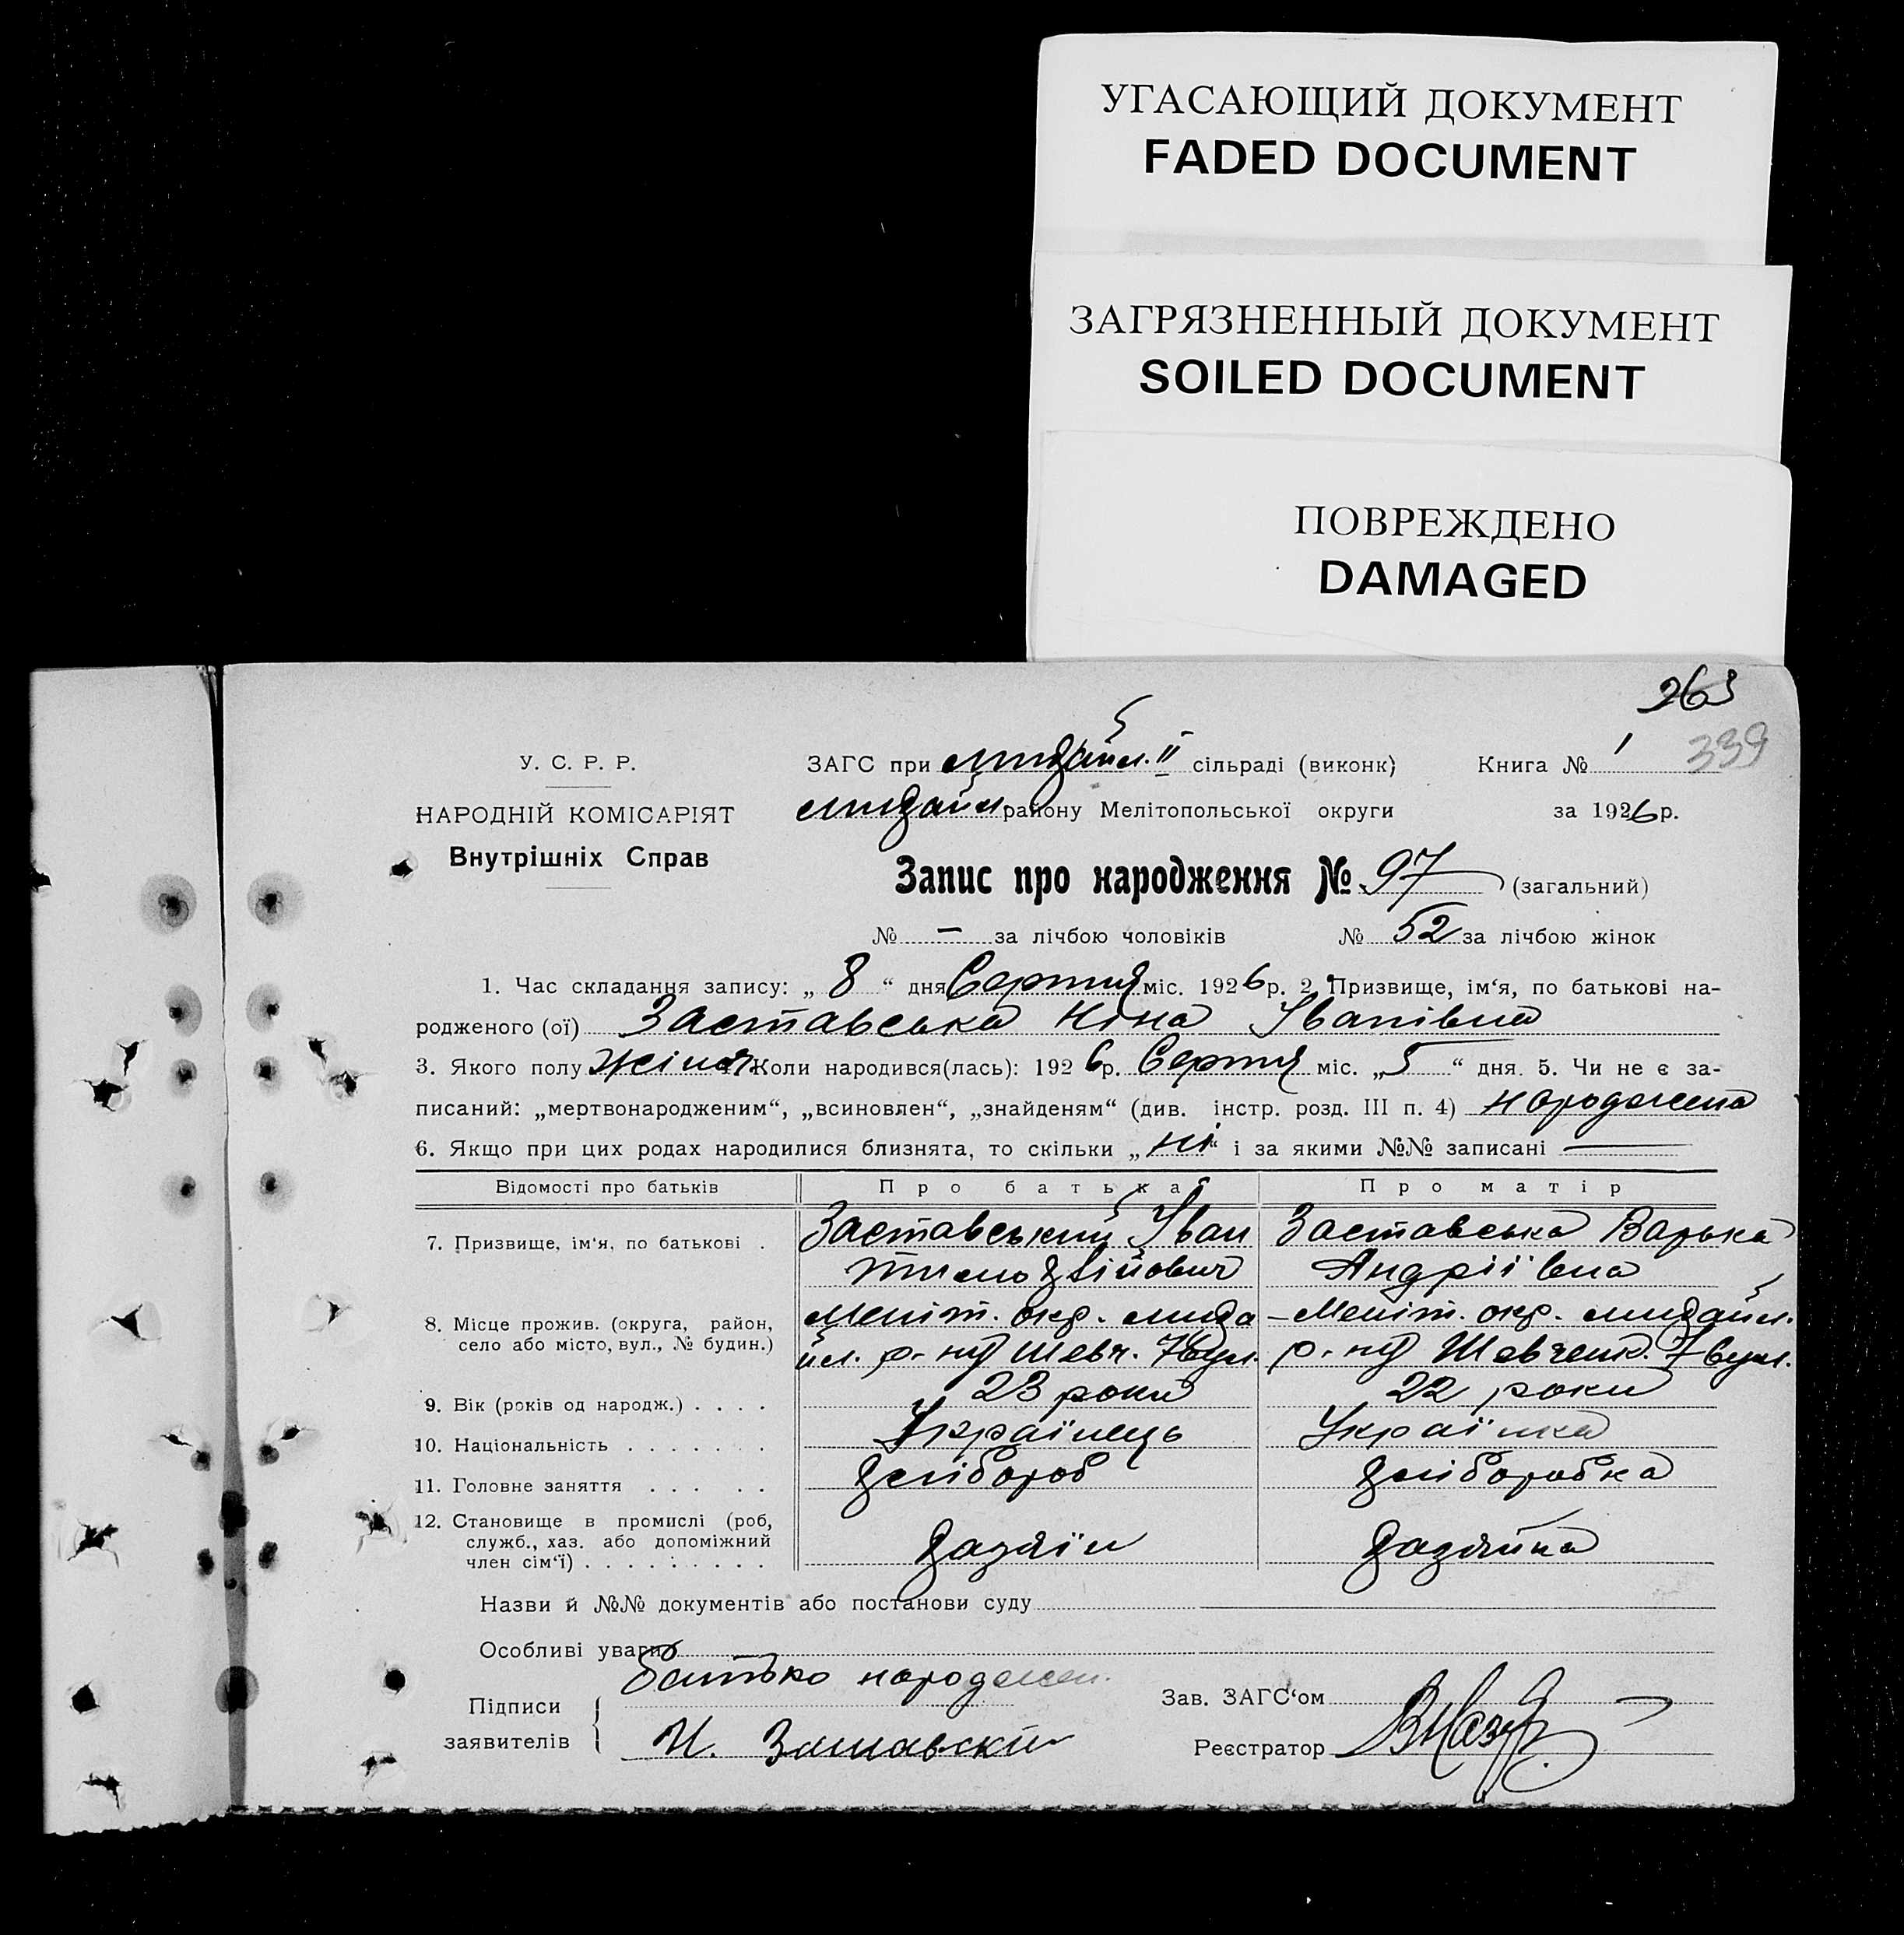 УГАСАЮЩИЙ ДОКУМЕНТ
FADED DOCUMENT
ЗАГРЯЗНЕННЫЙ ДОКУМЕНТ
SOILED DOCUMENT
ПОВРЕЖДЕНО
DAMAGED
263
339
У. С. Р. Р.
НАРОДНІЙ КОМІСАРІЯТ
Внутрішніх Справ
ЗАГС при михайл. II сільраді (виконк) Книга № 1
михайл. району Мелітопольської округи за 1926 р.
Запис про народження № 97 (загальний)
№ — за лічбою чоловіків № 52 за лічбою жінок
1. Час складання запису: „ 8 “ дня Серпня міс. 1926 р. 2. Призвище, ім‘я, по батькові на-
родженого (ої) Заставська Ніна Іванівна
3. Якого полу жіноч. Коли народився(лась): 1926 р. Серпня міс. „ 5 “ дня. 5. Чи не є за-
писаний: „мертвонародженим“, „всиновлен“, „знайденям“ (див. інстр. розд. III п. 4) народжена
6. Якщо при цих родах народилися близнята, то скільки „ ні “ і за якими №№ записані —
Відомості про батьків Про батька Про матір
7. Призвище, ім‘я, по батькові . Заставський Іван Заставська Варька
Тимохвійович Андріївна
8. Місце прожив. (округа, район, Меліт. окр. миха Меліт. окр. михайл.
село або місто, вул., № будин.) йл. р-ну Шевч. 7 вул. р-ну Шевченк. 7 вул.
9. Вік (років од народж.) . . . . 23 роки 22 роки
10. Національність . . . . . . . Українець Українка
11. Головне заняття . . . . . хлібороб хліборобка
12. Становище в промислі (роб,
служб., хаз. або допоміжний
член сім‘ї) . . . . . . . . . хазяїн хазяйка
Назви й №№ документів або постанови суду
Особливі уваги
батько народжен.
Підписи
заявителів
И. Заставский
Зав. ЗАГС‘ом
Реєстратор